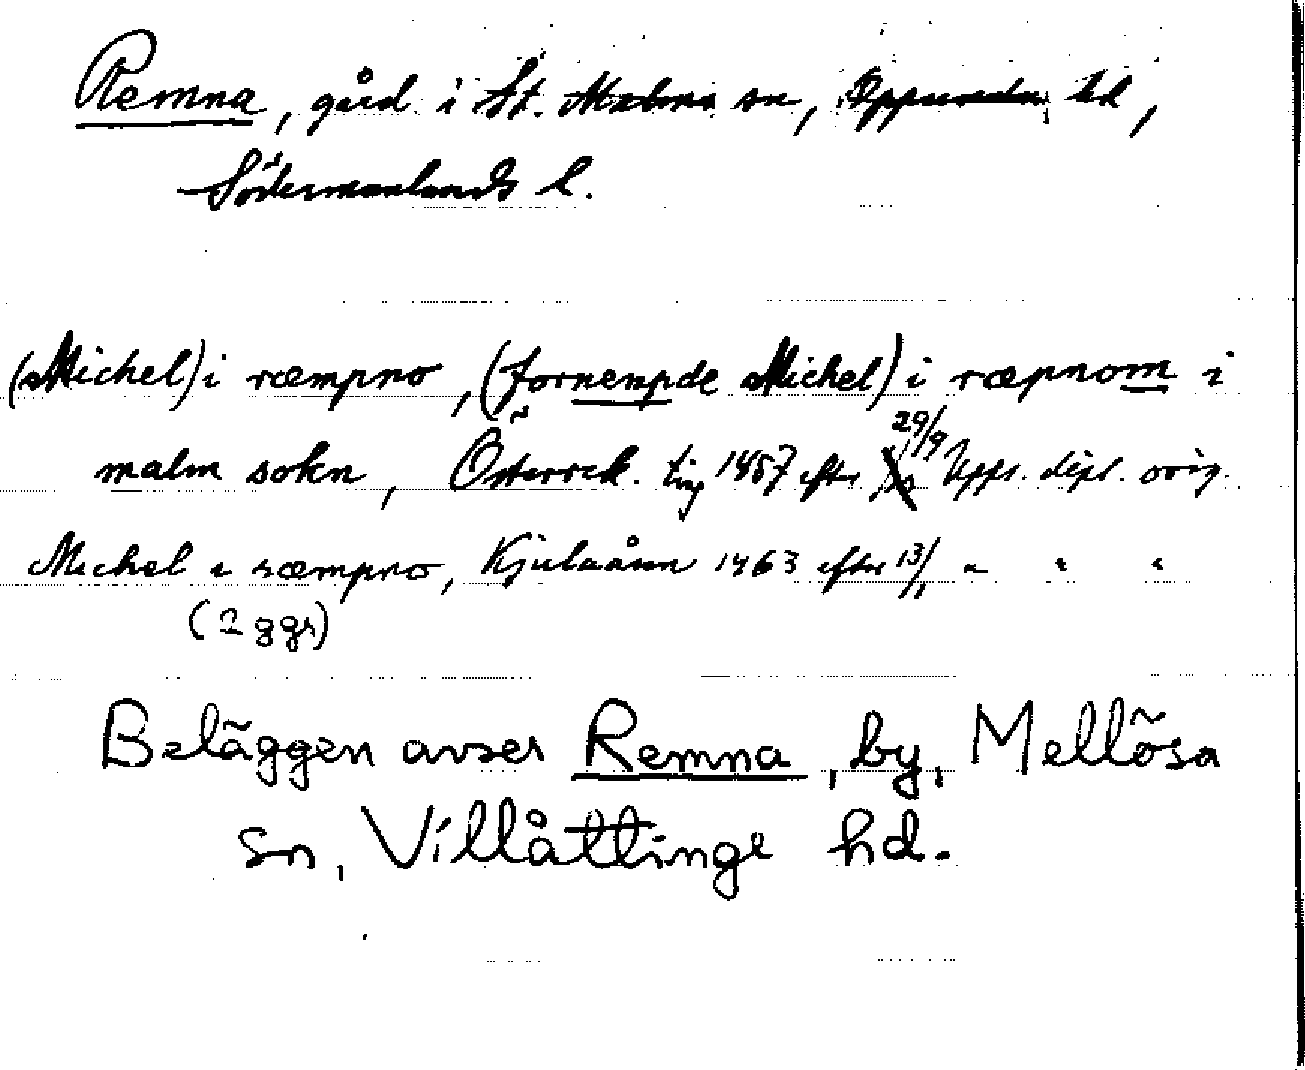 Remna, gård i St. Malms sn, Oppunda hd,
Södermanlands l.
(Michel) i ræmpno, (fornempde Michel) i ræpnom i
malm sokn, Österrek. ting 1457 efter 29/9 Upps. dipl. orig.
Michel i ræmpno, Kjulaåsen 1463 efter 13/1 " " "
(2 ggr)
Beläggen avser Remna, by, Mellösa
sn, Villåttinge hd.